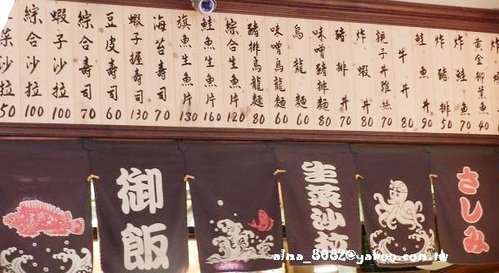 黃金柳葉魚 40
炸鮭魚 70
炸魚 50
鮭魚丼 90
牛丼 80
親子丼 雞絲 70
炸蝦丼 70
豬排丼 70
味噌豬排丼 80
烏龍麵 60
味噌烏龍麵 60
豬排烏龍麵 80
綜合生魚片 120
鮭魚生魚片 160
旗魚生魚片 130
海苔壽司 70
蝦子握壽司 130
豆皮壽司 60
綜合壽司 70
蝦子沙拉 100
綜合沙拉 100
菜沙拉 50
御飯
生菜沙拉
さしみ
aina_8082@yahoo.com.tw